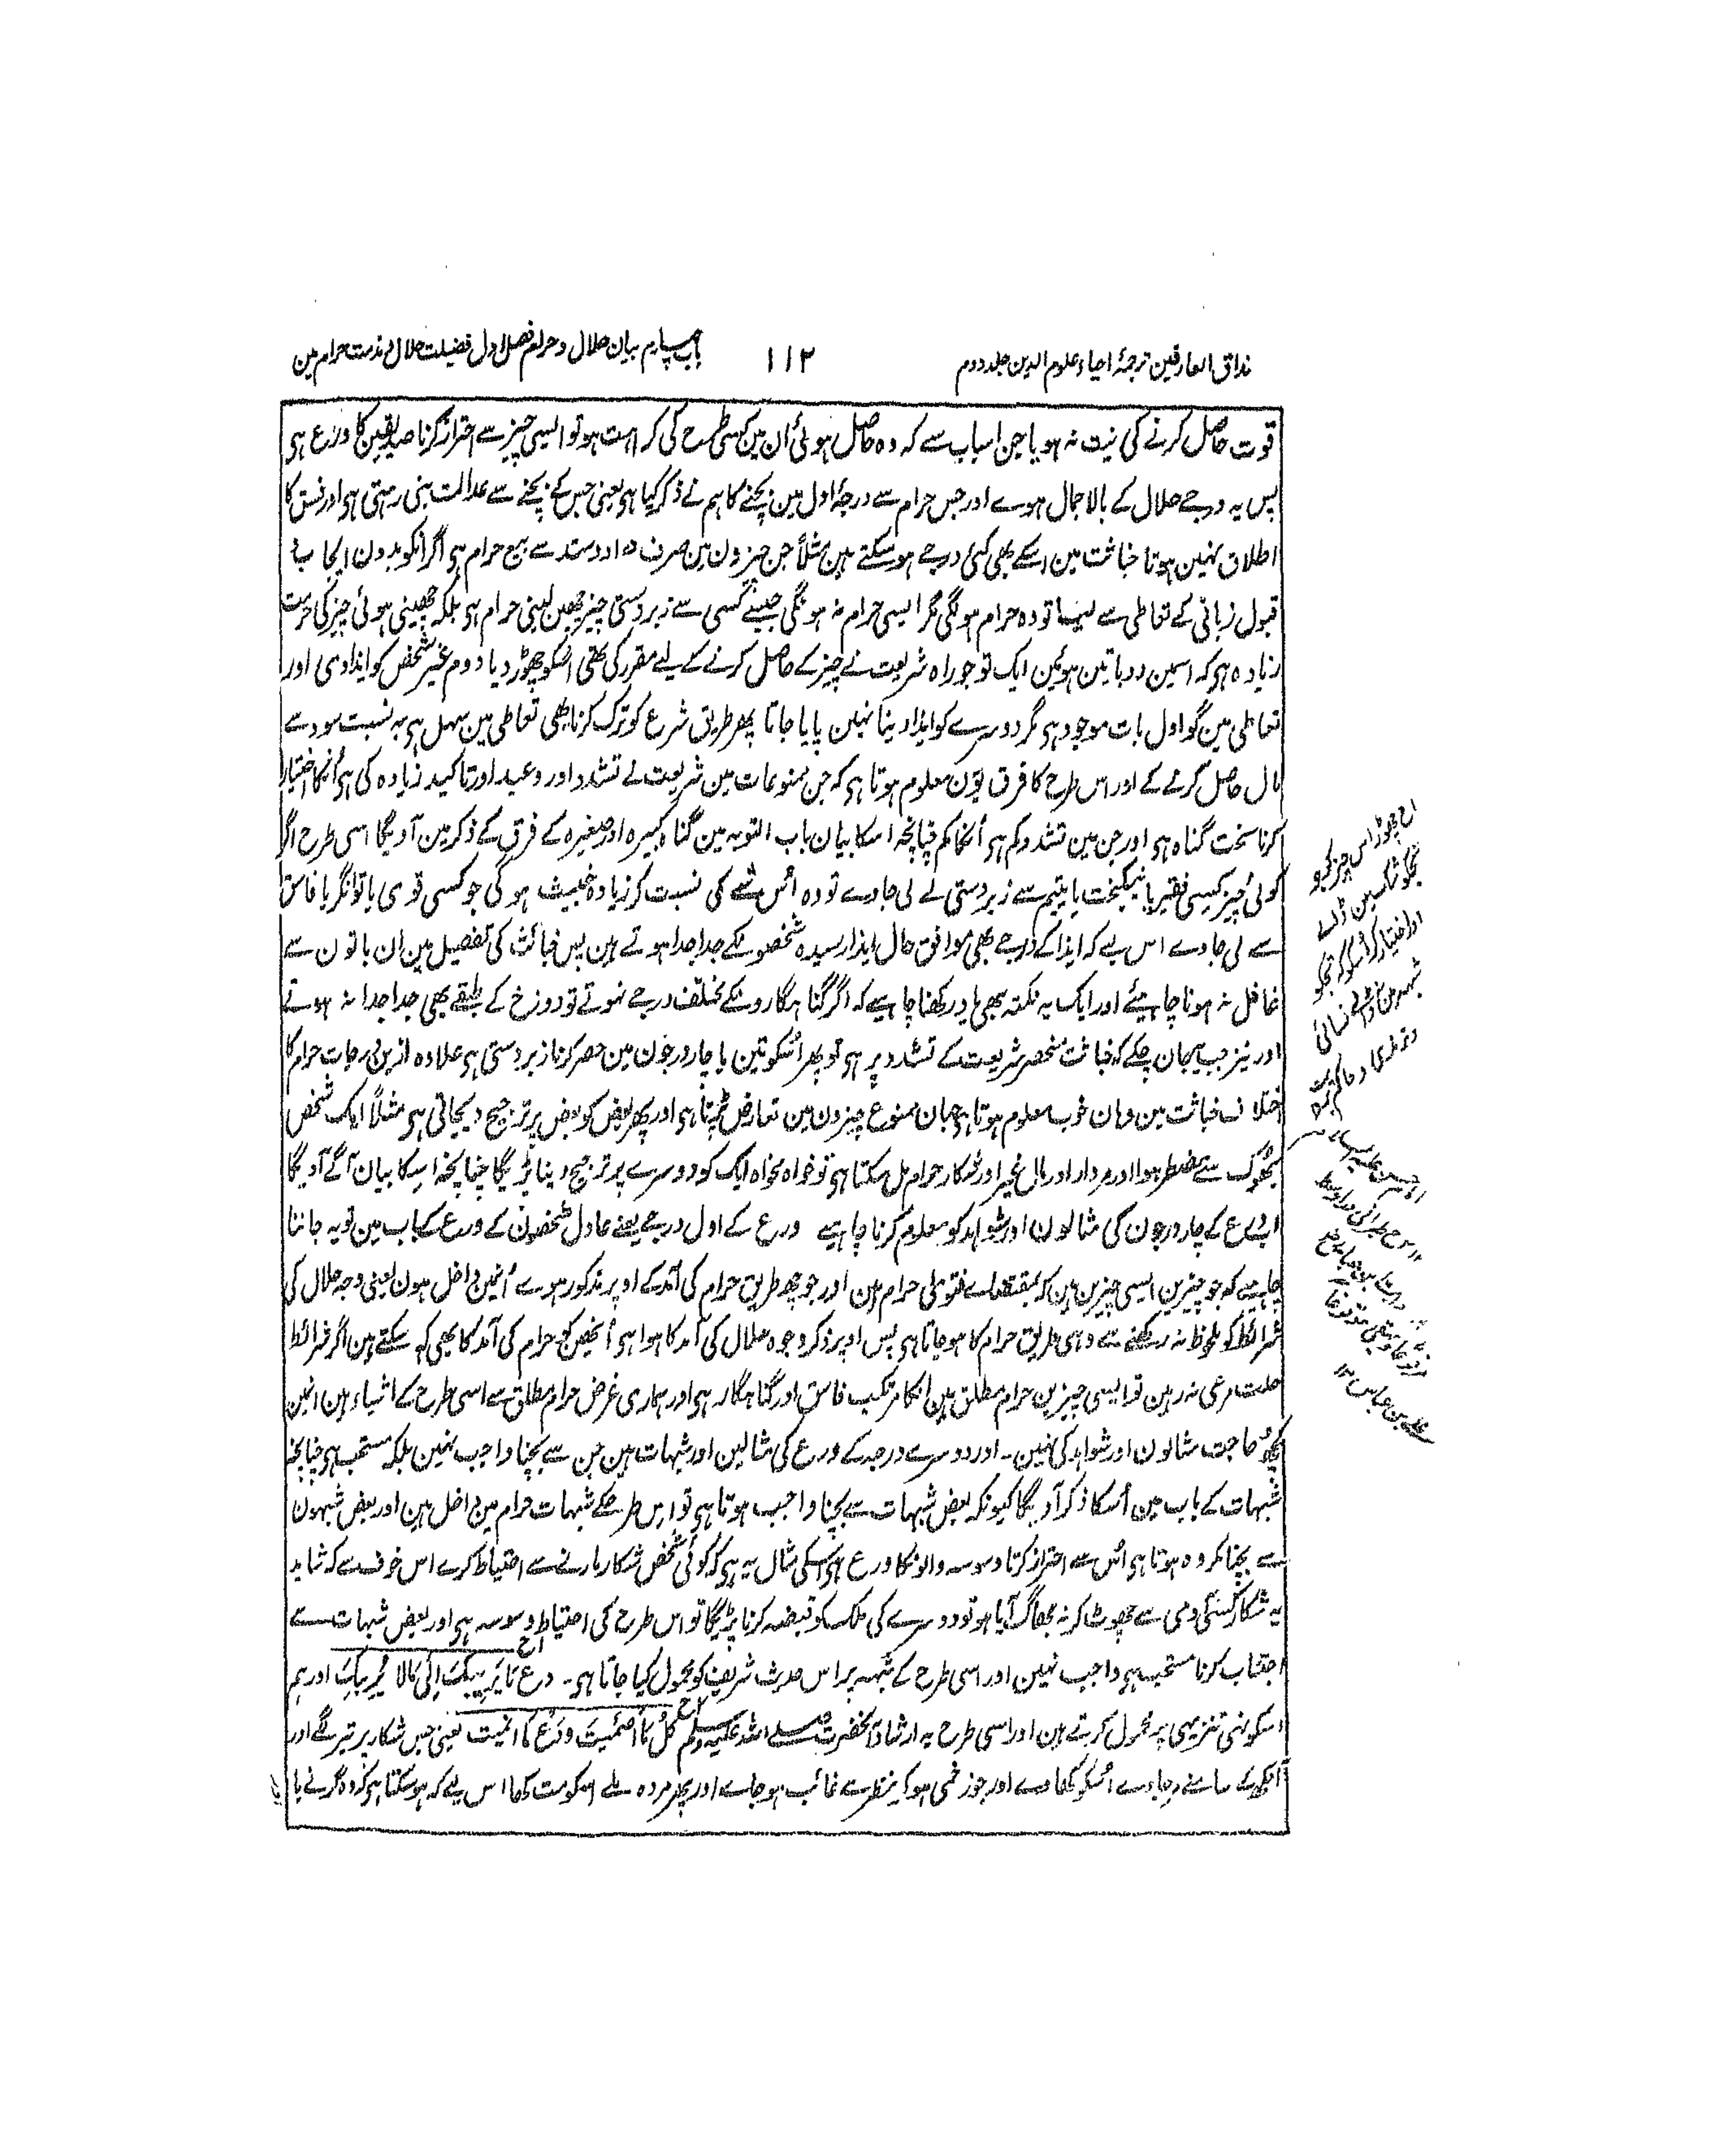 مذاق العارفین ترجمۂ احیاء علوم الدین جلد دوم
۱۱۲
باب چہارم بیان حلال و حرام فصل اول فضیلت حلال و مذمت حرام مین
قوت حاصل کرنے کی نیت نہ ہو یا جن اسباب سے کہ وہ حاصل ہوئی اُن مین کسی طرح کی کراہت ہو تو ایسی چیز سے احتراز کرنا صدیقین کا ورع ہی
پس یہ درجے حلال کے بالاجمال ہوے اور جس حرام سے درجۂ اول مین بچنے کا ہم نے ذکر کیا ہی یعنی جس کے بچنے سے عدالت بنی رہتی ہی اور فسق کا
اطلاق نہین ہوتا خباثت مین اسکے بھی کئی درجے ہو سکتے ہین مثلاً جن چیزون مین صرف داد و ستد سے بیع حرام ہی اگر انکو بدون ایجاب و
قبول زبانی کے تعاطی سے لیگا تو وہ حرام ہونگی مگر ایسی حرام نہ ہونگی جیسے کسی سے زبردستی چیز چھین لینی حرام ہی بلکہ چھینی ہوئی چیز کی حرمت
زیادہ ہی کہ اسمین دو باتین ہوئین ایک تو جو راہ شریعت نے چیز کے حاصل کرنے کے لیے مقرر کی تھی اسکو چھوڑ دیا دوم غیر شخص کو ایذا دی اور
تعاطی مین گو اول بات موجود ہی مگر دوسرے کو ایذا دینا نہین پایا جاتا پھر طریق شرع کو ترک کرنا بھی تعاطی مین سہل ہی بہ نسبت سود سے
مال حاصل کرنے کے اور اس طرح کا فرق یون معلوم ہوتا ہی کہ جن ممنوعات مین شریعت نے تشدد اور وعید اور تاکید زیادہ کی ہی اُنکا اختیار
کرنا سخت گناہ ہی اور جن مین تشدد کم ہی اُنکا کم چنانچہ اسکا بیان باب التوبہ مین گناہ کبیرہ اور صغیرہ کے فرق کے ذکر مین آویگا اسی طرح اگر
کوئی چیز کسی فقیر یا نیکبخت یا یتیم سے زبردستی لے لی جاوے تو وہ اُس شے کی نسبت کر زیادہ خبیث ہو گی جو کسی قوی یا توانگر یا فاسق
سے لی جاوے اس لیے کہ ایذا کے درجے بھی موافق حال ایذا رسیدہ شخصونکے جدا جدا ہوتے ہین پس خبائث کی تفصیل مین ان باتون سے
غافل نہ ہونا چاہیئے اور ایک یہ نکتہ بھی یاد رکھنا چاہیے کہ اگر گناہگارونکے مختلف درجے نہوتے تو دوزخ کے طبقے بھی جدا جدا نہ ہوتے
اور نیز جب یہ جان چکے کہ خباثت منحصر شریعت کے تشدد پر ہی تو پھر اُسکو تین یا چار درجون مین حصر کرنا زبردستی ہی علاوہ ازین درجات حرام کا
اختلاف خباثت مین وہان خوب معلوم ہوتا ہی جہان ممنوع چیزون مین تعارض پڑتا ہی اور پھر بعض کو بعض پر ترجیح دیجاتی ہی مثلاً ایک شخص
بھوک سے مضطر ہوا اور مردار اور مال غیر اور شکار حرام مل سکتا ہی تو خواہ مخواہ ایک کو دوسرے پر ترجیح دینا پڑیگا چنانچہ اسکا بیان آگے آویگا
اب ورع کے چار درجون کی مثالون اور شواہد کو معلوم کرنا چاہیے ورع کے اول درجے یعنے عادل شخصون کے ورع کے باب مین تو یہ جاننا
چاہیے کہ جو چیزین ایسی چیزین ہین کہ بمقتضاے فتوی حرام ہین اور جو چھ طریق حرام کی آمد کے اوپر مذکور ہوے اُنمین داخل ہون یعنی وجہ حلال کی
شرائط کو ملحوظ نہ رکھنے سے وہی طریق حرام کا ہو جاتا ہی پس اوپر ذکر وجوہ حلال کی آمد کا ہوا ہی اُنھین کو حرام کی آمد کا بھی کہہ سکتے ہین اگر شرائط
حلت مرعی نہ رہین تو ایسی چیزین حرام مطلق ہین انکا مرتکب فاسق اور گناہگار ہی اور ہماری غرض حرام مطلق سے اسی طرح کے اشیاء ہین انمین
کچھ حاجت مثالون اور شواہد کی نہین۔ اور دوسرے درجہ کے ورع کی مثالین اور شبہات ہین جن سے بچنا واجب نہین بلکہ مستحب ہی چنانچہ
شبہات کے باب مین اُسکا ذکر آویگا کیونکہ بعض شبہات سے بچنا واجب ہوتا ہی تو اس طرح کے شبہات حرام مین داخل ہین اور بعض شبہون
سے بچنا مکروہ ہوتا ہی اُس سے احتراز کرنا وسوسہ والونکا ورع ہی اسکی مثال یہ ہی کہ کوئی شخص شکار مارنے سے احتیاط کرے اس خوف سے کہ شاید
یہ شکار کسی آدمی سے چھوٹ کر نہ بھاگ آیا ہو تو دوسرے کی ملک کو قبضہ کرنا پڑیگا تو اس طرح کی احتیاط وسوسہ ہی اور بعض شبہات سے
اجتناب کرنا مستحب ہی واجب نہین اور اسی طرح کے شبہہ پر اس حدیث شریف کو محمول کیا جاتا ہی۔ دع مَا یُرِیبُکَ اِلیٰ مَالا یُرِیبُکَ اور ہم
اسکو نہی تنزیہی پر محمول کرتے ہین اور اسی طرح یہ ارشاد آنحضرت صلے اللہ علیہ وسلم کُلْ مَا اَصْمَیْتَ وَدَعْ مَا انمیت یعنی جس شکار پر تیر لگے اور
آنکھ کے سامنے مر جاوے اُسکو کھا لے اور جو زخمی ہو کر نظر سے غائب ہو جاے اور پھر مردہ ملے اسکو مت کھا اس لیے کہ ہو سکتا ہی کہ وہ گرنے یا
اح چھوڑ اس چیز کو جو
تجکو شک مین ڈالے
اور اختیار کر اُسکو کہ تجکو
شبہہ مین نہ ڈالے نسائی
و ترمذی و حاکم بروایت
ح طبرانی در اوسط
بن عباس ۱۲